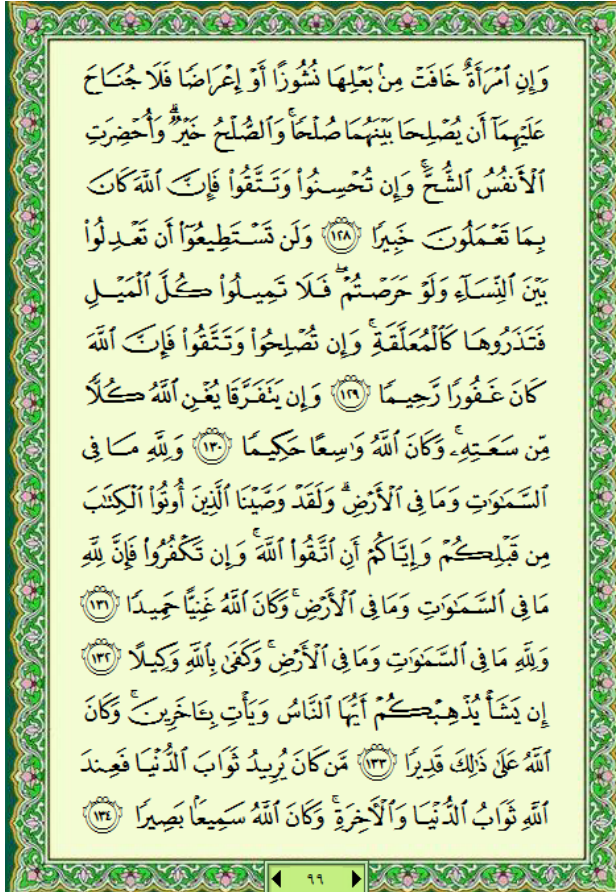 وَإِنِ ٱمۡرَأَةٌ خَافَتۡ مِنۢ بَعۡلِهَا نُشُوزًا أَوۡ إِعۡرَاضٗا فَلَا جُنَاحَ
عَلَيۡهِمَآ أَن يُصۡلِحَا بَيۡنَهُمَا صُلۡحٗاۚ وَٱلصُّلۡحُ خَيۡرٞۗ وَأُحۡضِرَتِ
ٱلۡأَنفُسُ ٱلشُّحَّۚ وَإِن تُحۡسِنُواْ وَتَتَّقُواْ فَإِنَّ ٱللَّهَ كَانَ
بِمَا تَعۡمَلُونَ خَبِيرٗا ١٢٨ وَلَن تَسۡتَطِيعُوٓاْ أَن تَعۡدِلُواْ
بَيۡنَ ٱلنِّسَآءِ وَلَوۡ حَرَصۡتُمۡۖ فَلَا تَمِيلُواْ كُلَّ ٱلۡمَيۡلِ
فَتَذَرُوهَا كَٱلۡمُعَلَّقَةِۚ وَإِن تُصۡلِحُواْ وَتَتَّقُواْ فَإِنَّ ٱللَّهَ
كَانَ غَفُورٗا رَّحِيمٗا ١٢٩ وَإِن يَتَفَرَّقَا يُغۡنِ ٱللَّهُ كُلّٗا
مِّن سَعَتِهِۦۚ وَكَانَ ٱللَّهُ وَٰسِعًا حَكِيمٗا ١٣٠ وَلِلَّهِ مَا فِي
ٱلسَّمَٰوَٰتِ وَمَا فِي ٱلۡأَرۡضِۗ وَلَقَدۡ وَصَّيۡنَا ٱلَّذِينَ أُوتُواْ ٱلۡكِتَٰبَ
مِن قَبۡلِكُمۡ وَإِيَّاكُمۡ أَنِ ٱتَّقُواْ ٱللَّهَۚ وَإِن تَكۡفُرُواْ فَإِنَّ لِلَّهِ
مَا فِي ٱلسَّمَٰوَٰتِ وَمَا فِي ٱلۡأَرۡضِۚ وَكَانَ ٱللَّهُ غَنِيًّا حَمِيدٗا ١٣١
وَلِلَّهِ مَا فِي ٱلسَّمَٰوَٰتِ وَمَا فِي ٱلۡأَرۡضِۚ وَكَفَىٰ بِٱللَّهِ وَكِيلًا ١٣٢
إِن يَشَأۡ يُذۡهِبۡكُمۡ أَيُّهَا ٱلنَّاسُ وَيَأۡتِ بِـَٔاخَرِينَۚ وَكَانَ
ٱللَّهُ عَلَىٰ ذَٰلِكَ قَدِيرٗا ١٣٣ مَّن كَانَ يُرِيدُ ثَوَابَ ٱلدُّنۡيَا فَعِندَ
ٱللَّهِ ثَوَابُ ٱلدُّنۡيَا وَٱلۡأٓخِرَةِۚ وَكَانَ ٱللَّهُ سَمِيعَۢا بَصِيرٗا ١٣٤
٩٩